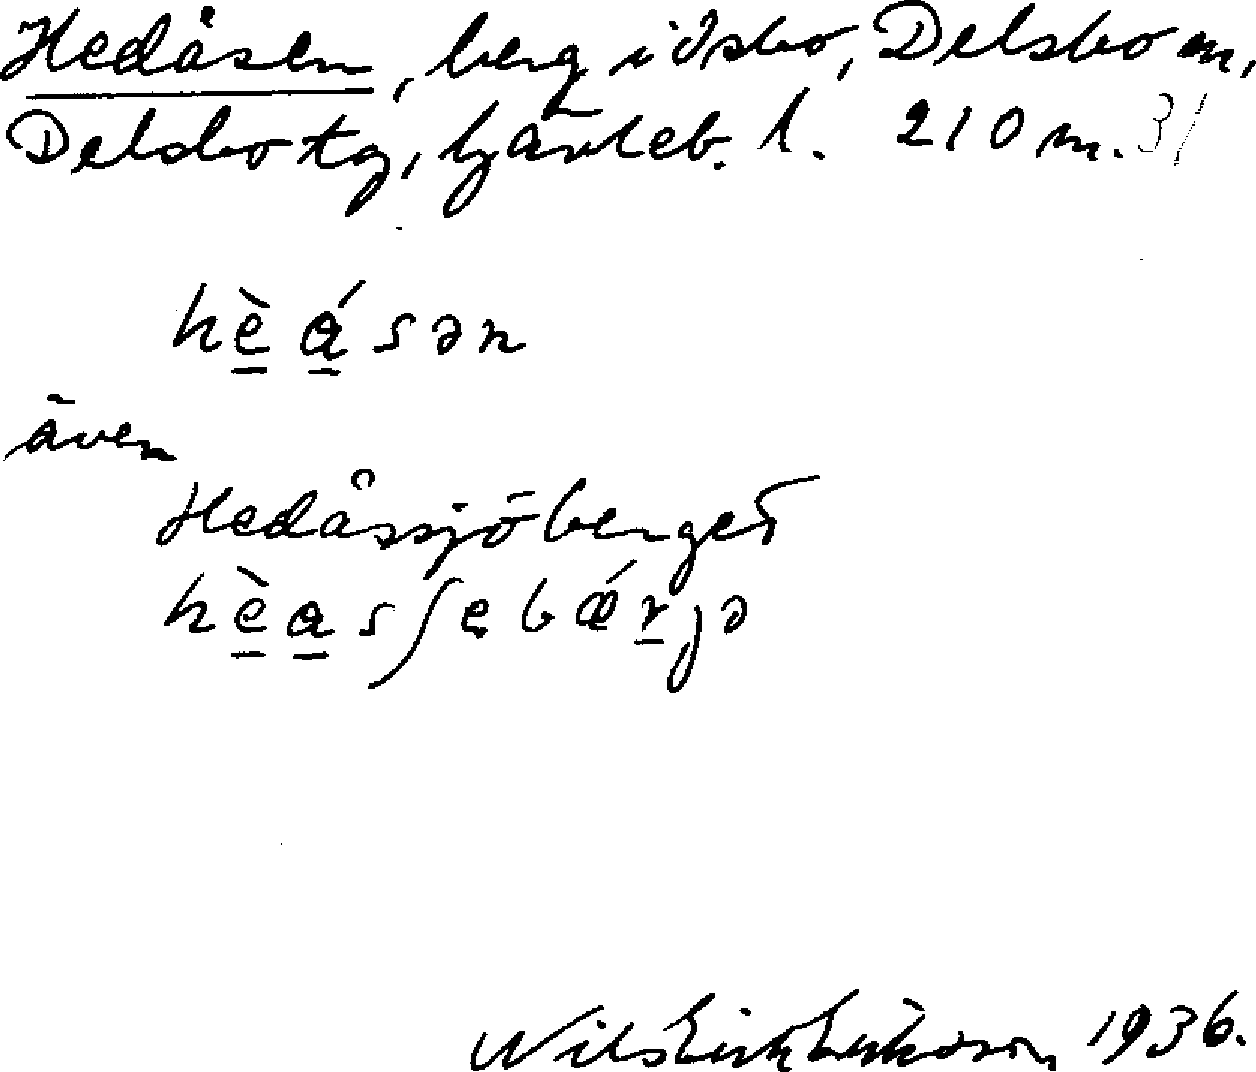 Hedåsen, berg i Ösbo, Delsbo sn,
Delsbo tg, Gävleb. l. 210 m. 31
hè̠ á̠ sən
även
Hedåssjöberget
hè̠a̠sʃebǽr̠jə
Nils Erik Eriksson, 1936.